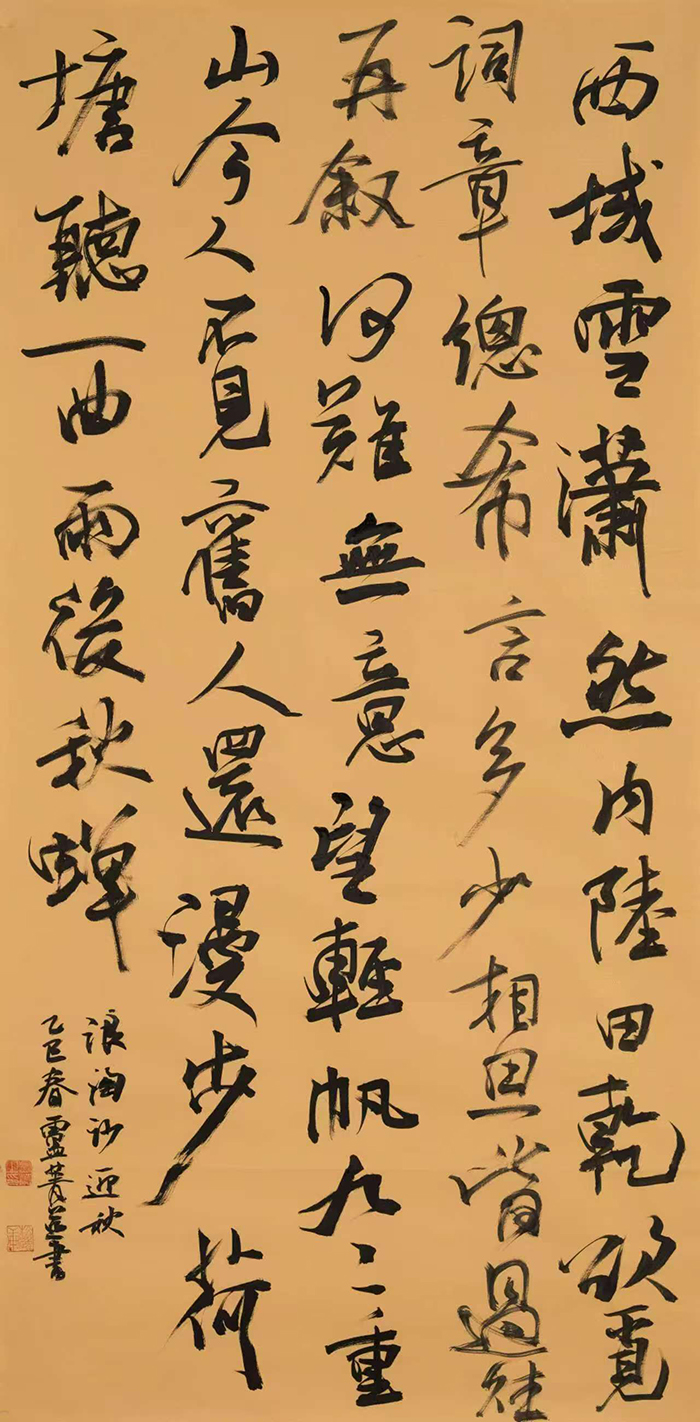 西域雪瀟然內陸田乾欲覓
詞章總希言多少相思皆過往
再敘何難無意望輕帆九二重
山今人不見舊人還漫步荷
塘聽一曲雨後秋蟬
浪淘沙迎秋
乙巳春菁並書